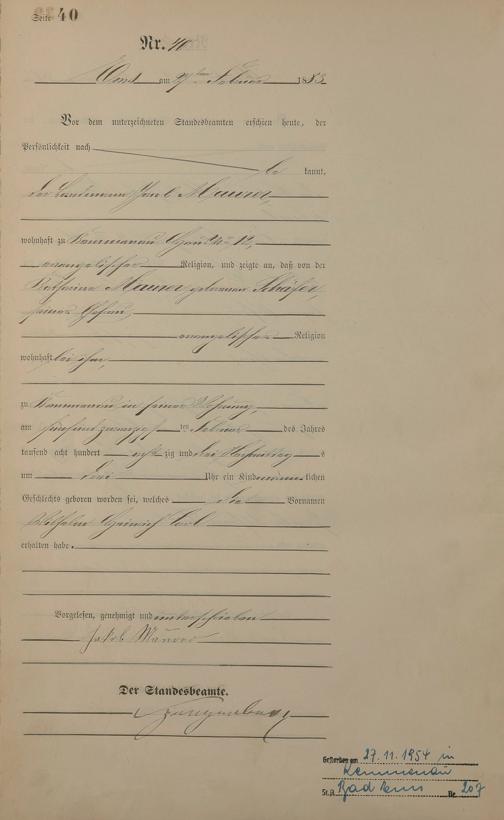 Seite 40
Nr. 40
Ems am 27ten Februar 1883
Vor dem unterzeichneten Standesbeamten erschien heute, der
Persönlichkeit nach
be kannt,
der Landmann Jacob Maurer,
wohnhaft zu Kemmenau Haus № 12,
evangelischer Religion, und zeigte an, daß von der
Katharine Maurer geborenen Schäfer,
seiner Ehefrau,
evangelischer Religion
wohnhaft bei ihm,
zu Kemmenau in seiner Wohnung,
am fünfundzwanzigsten Februar des Jahres
tausend acht hundert achtzig und drei Nachmittags
um drei Uhr ein Kind männlichen
Geschlechts geboren worden sei, welches die Vornamen
Wilhelm Heinrich Carl
erhalten habe.
Vorgelesen, genehmigt und unterschrieben
Jakob Maurer
Der Standesbeamte.
Gestorben am 27.11.1954 in
Kemmenau
St.A. Bad Ems Nr. 207